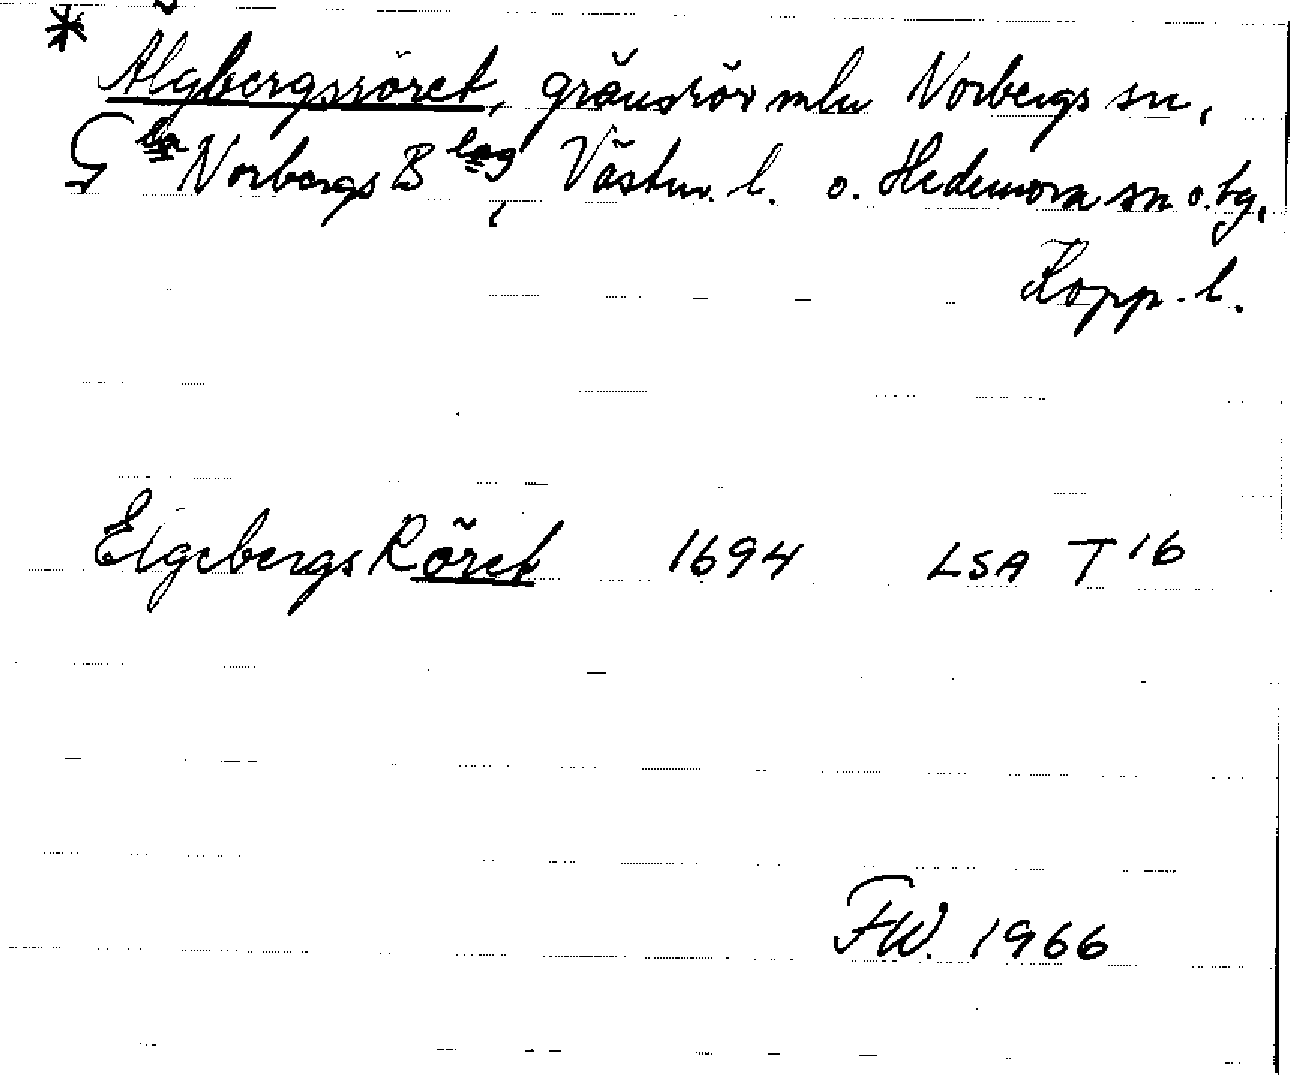 * Älgbergsröret, gränsrör mln Norbergs sn,
G:la Norbergs B:lag, Västm. l. o. Hedemora sn o. tg,
Kopp. l.
ElgebergsRöret 1694 LSA T 16
FW. 1966